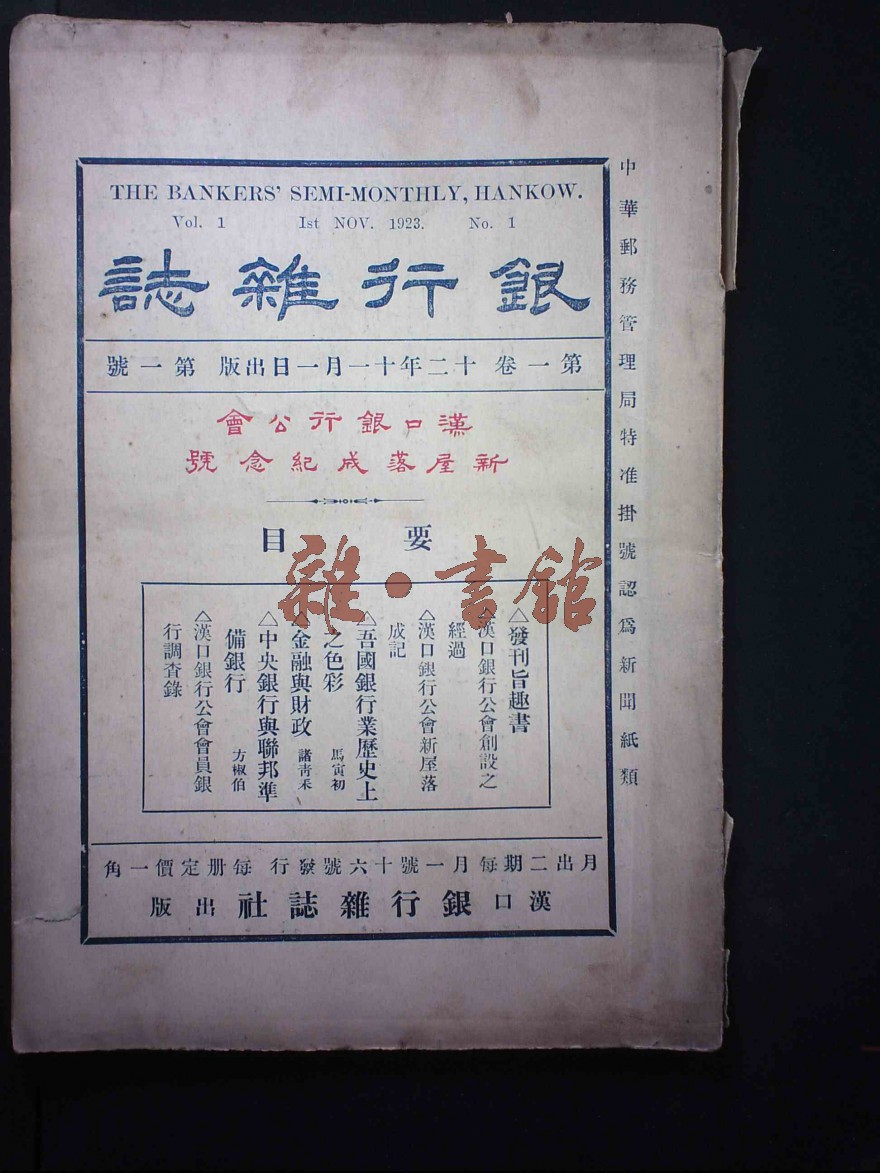 THE BANKERS' SEMI-MONTHLY, HANKOW.
Vol. 1 1st NOV. 1923. No. 1
銀行雜誌
第一卷 十二年十一月一日出版 第一號
漢口銀行公會
新屋落成紀念號
要目
△發刊旨趣書
△漢口銀行公會創設之
經過
△漢口銀行公會新屋落
成記
△吾國銀行業歷史上
之色彩 馬寅初
△金融與財政 諸青來
△中央銀行與聯邦準
備銀行 方椒伯
△漢口銀行公會會員銀
行調查錄
月出二期每月一號十六號發行 每册定價一角
漢口銀行雜誌社出版
中華郵務管理局特准掛號認爲新聞紙類
雜·書館